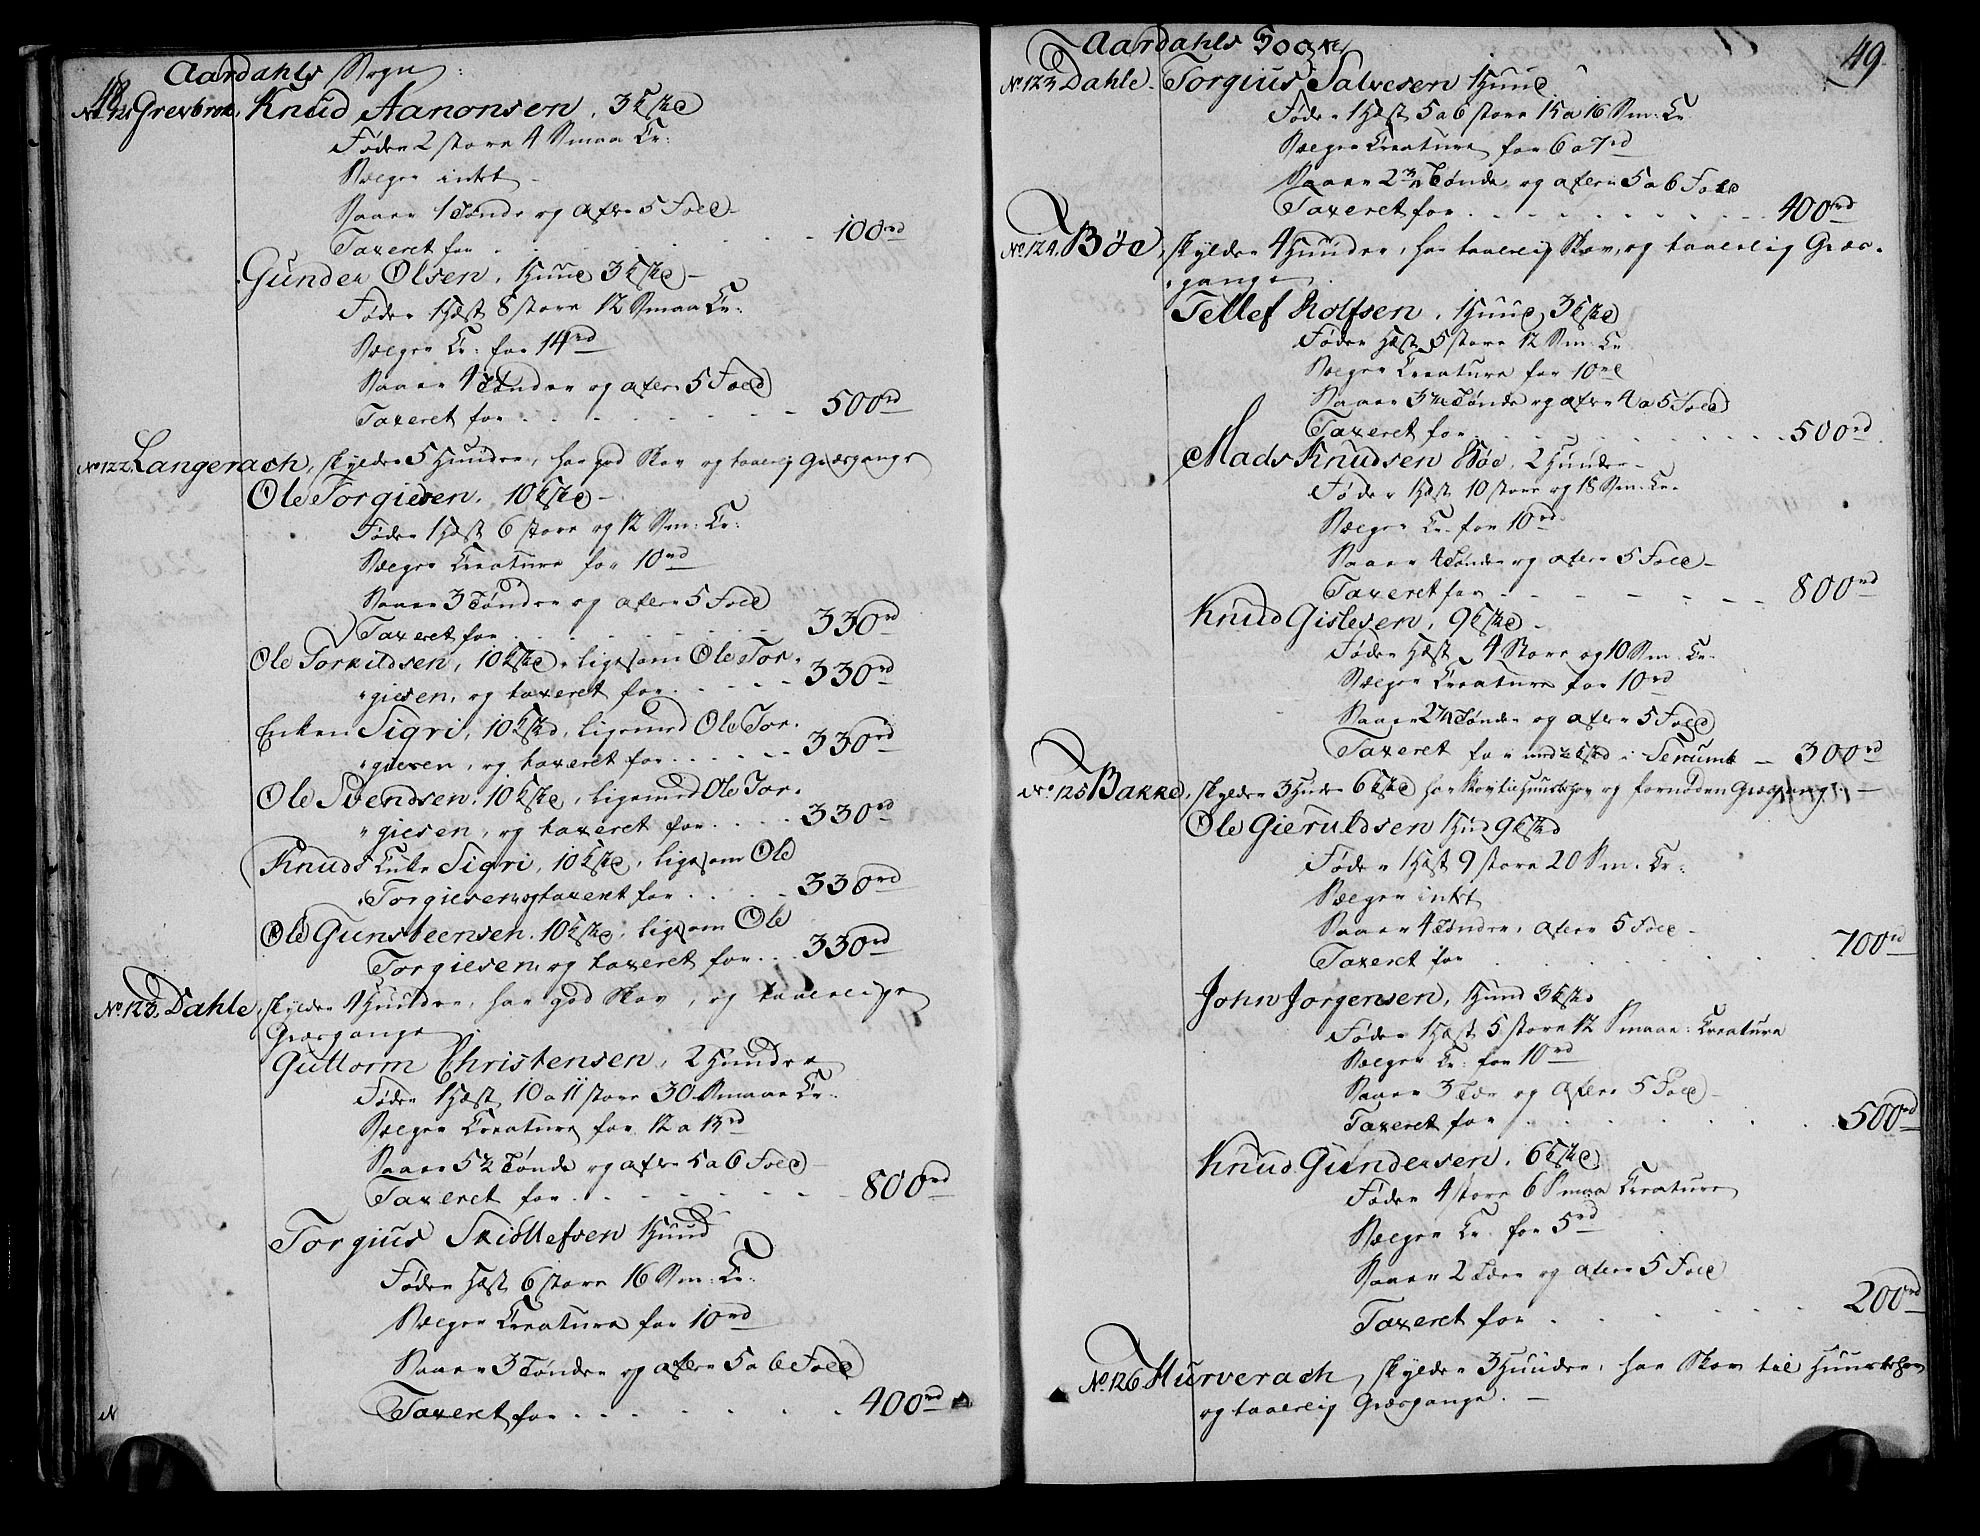 48
Aardahls Sogn
No 121 Grevbrok, Knud Aanonsen, 3 kskd
Føder 2 store 4 Smaa Cr:
Sælger intet
Saaer 1 Tønde og avler 5 Fold
Taxeret for 100 rd
Gunder Olsen, 1 Huud 3 kskd
Føder 1 Hæst 8 store 12 Smaa Cr:
Sælger Cr: for 14 rd
Saaer 4 Tønder og avler 5 Fold
Taxeret for 500 rd
No 122 Langerach, skylder 5 Huuder, har god Skov og taaelig Græsgange
Ole Torgiesen, 10 kskd
Føder 1 Hæst 6 store og 12 Sm: Cr:
Sælger Creature for 10 rd
Saaer 3 Tønder og avler 5 Fold
Taxeret for 330 rd
Ole Torkildsen, 10 kskd, ligesom Ole Tor-
giesen, og taxeret for 330 rd
Enken Sigri, 10 kskd, ligemed Ole Tor-
giesen, og taxeret for 330 rd
Ole Svendsen, 10 kskd, ligemed Ole Tor-
giesen, og taxeret for 330 rd
Knuds Enke Sigri, 10 kskd, ligesom Ole
Torgiesen og taxeret for 330 rd
Ole Gunsteensen, 10 kskd, ligesom Ole
Torgiesen, og taxeret for 330 rd
No 123, Dahle, skylder 4 Huuder, har god Skov, og taaelige
Græsgange
Guttorm Christensen, 2 Huuder
Føder 1 Hæst, 10 a 11 store 30 Smaae Cr:
Sælger Creature for 12 a 13 rd
Saaer 5½ Tønde og avler 5 a 6 Fold
Taxeret for 800 rd
Torgius Skiøllefsen 1 Huud
Føder Hæst 6 store 16 Sm: Cr:
Sælger Creature for 10 rd
Saaer 3 Tønder og avler 5 a 6 Fold
Taxeret for 400 rd
49
Aardahls Sogn
No 123 Dahle. Torgius Salvesen 1 Huud
Føder 1 Hæst 5 a 6 store 15 a 16 Sm: Cr
Sælger Creature for 6 a 7 rd
Saaer Tønde og avler 5 a 6 Fold
Taxeret for 400 rd
No 124. Bøe, skylder 4 Huuder, har taaelig Skov, og taaelig Græs-
gange
Tellef Rolfsen, 1 Huud, 3 kskd
Føder Hæst 5 store 12 Sm: Cr
Sælger Creature for 10 rd
Saaer 3½ Tønde og avler 4 a 5 Fold
Taxeret for 500 rd
Mads Knudsen Bøe, 2 Huuder
Føder 1 Hæst 10 store og 18 Sm: Cr.
Sælger Cr. for 10 rd
Saaer 4 Tønder og avler 5 Fold
Taxeret for 800 rd
Knud Gislesen, 9 kskd
Føder Hæst 4 Store og 10 Sm: Cr.
Sælger Creature for 10 rd
Saaer 2½ Tønder og avler 5 Fold
Taxeret for med kskd i Senumb 300 rd
No 125 Bakke, skylder 3 Huder 6 kskd har Skov til Huusbehov og fornøden Græsgang
Ole Gieruldsen 1 Hud 9 kskd
Føder 1 Hæst 9 store 20 Sm: Cr:
Sælger intet
Saaer 4 Tønder, avler 5 Fold
Taxeret for 700 rd
John Jorgensen, 1 Huud 3 kskd
Føder 1 Hæst 5 store 12 Smaae: Creature
Sælger Cr: for 10 rd
Saaer 3 Tdr og avler 5 Fold
Taxeret for 500 rd
Knud Gundersen, 6 kskd
Føder 4 store 6 Smaa Creature
Sælger Cr. for 5 rd
Saaer 2 Tdr og avler 5 Fold
Taxeret for 200 rd
No 126 Hurverach, skylder 3 Huuder, har Skov til Huusbehov
og taaelig Græsgange.